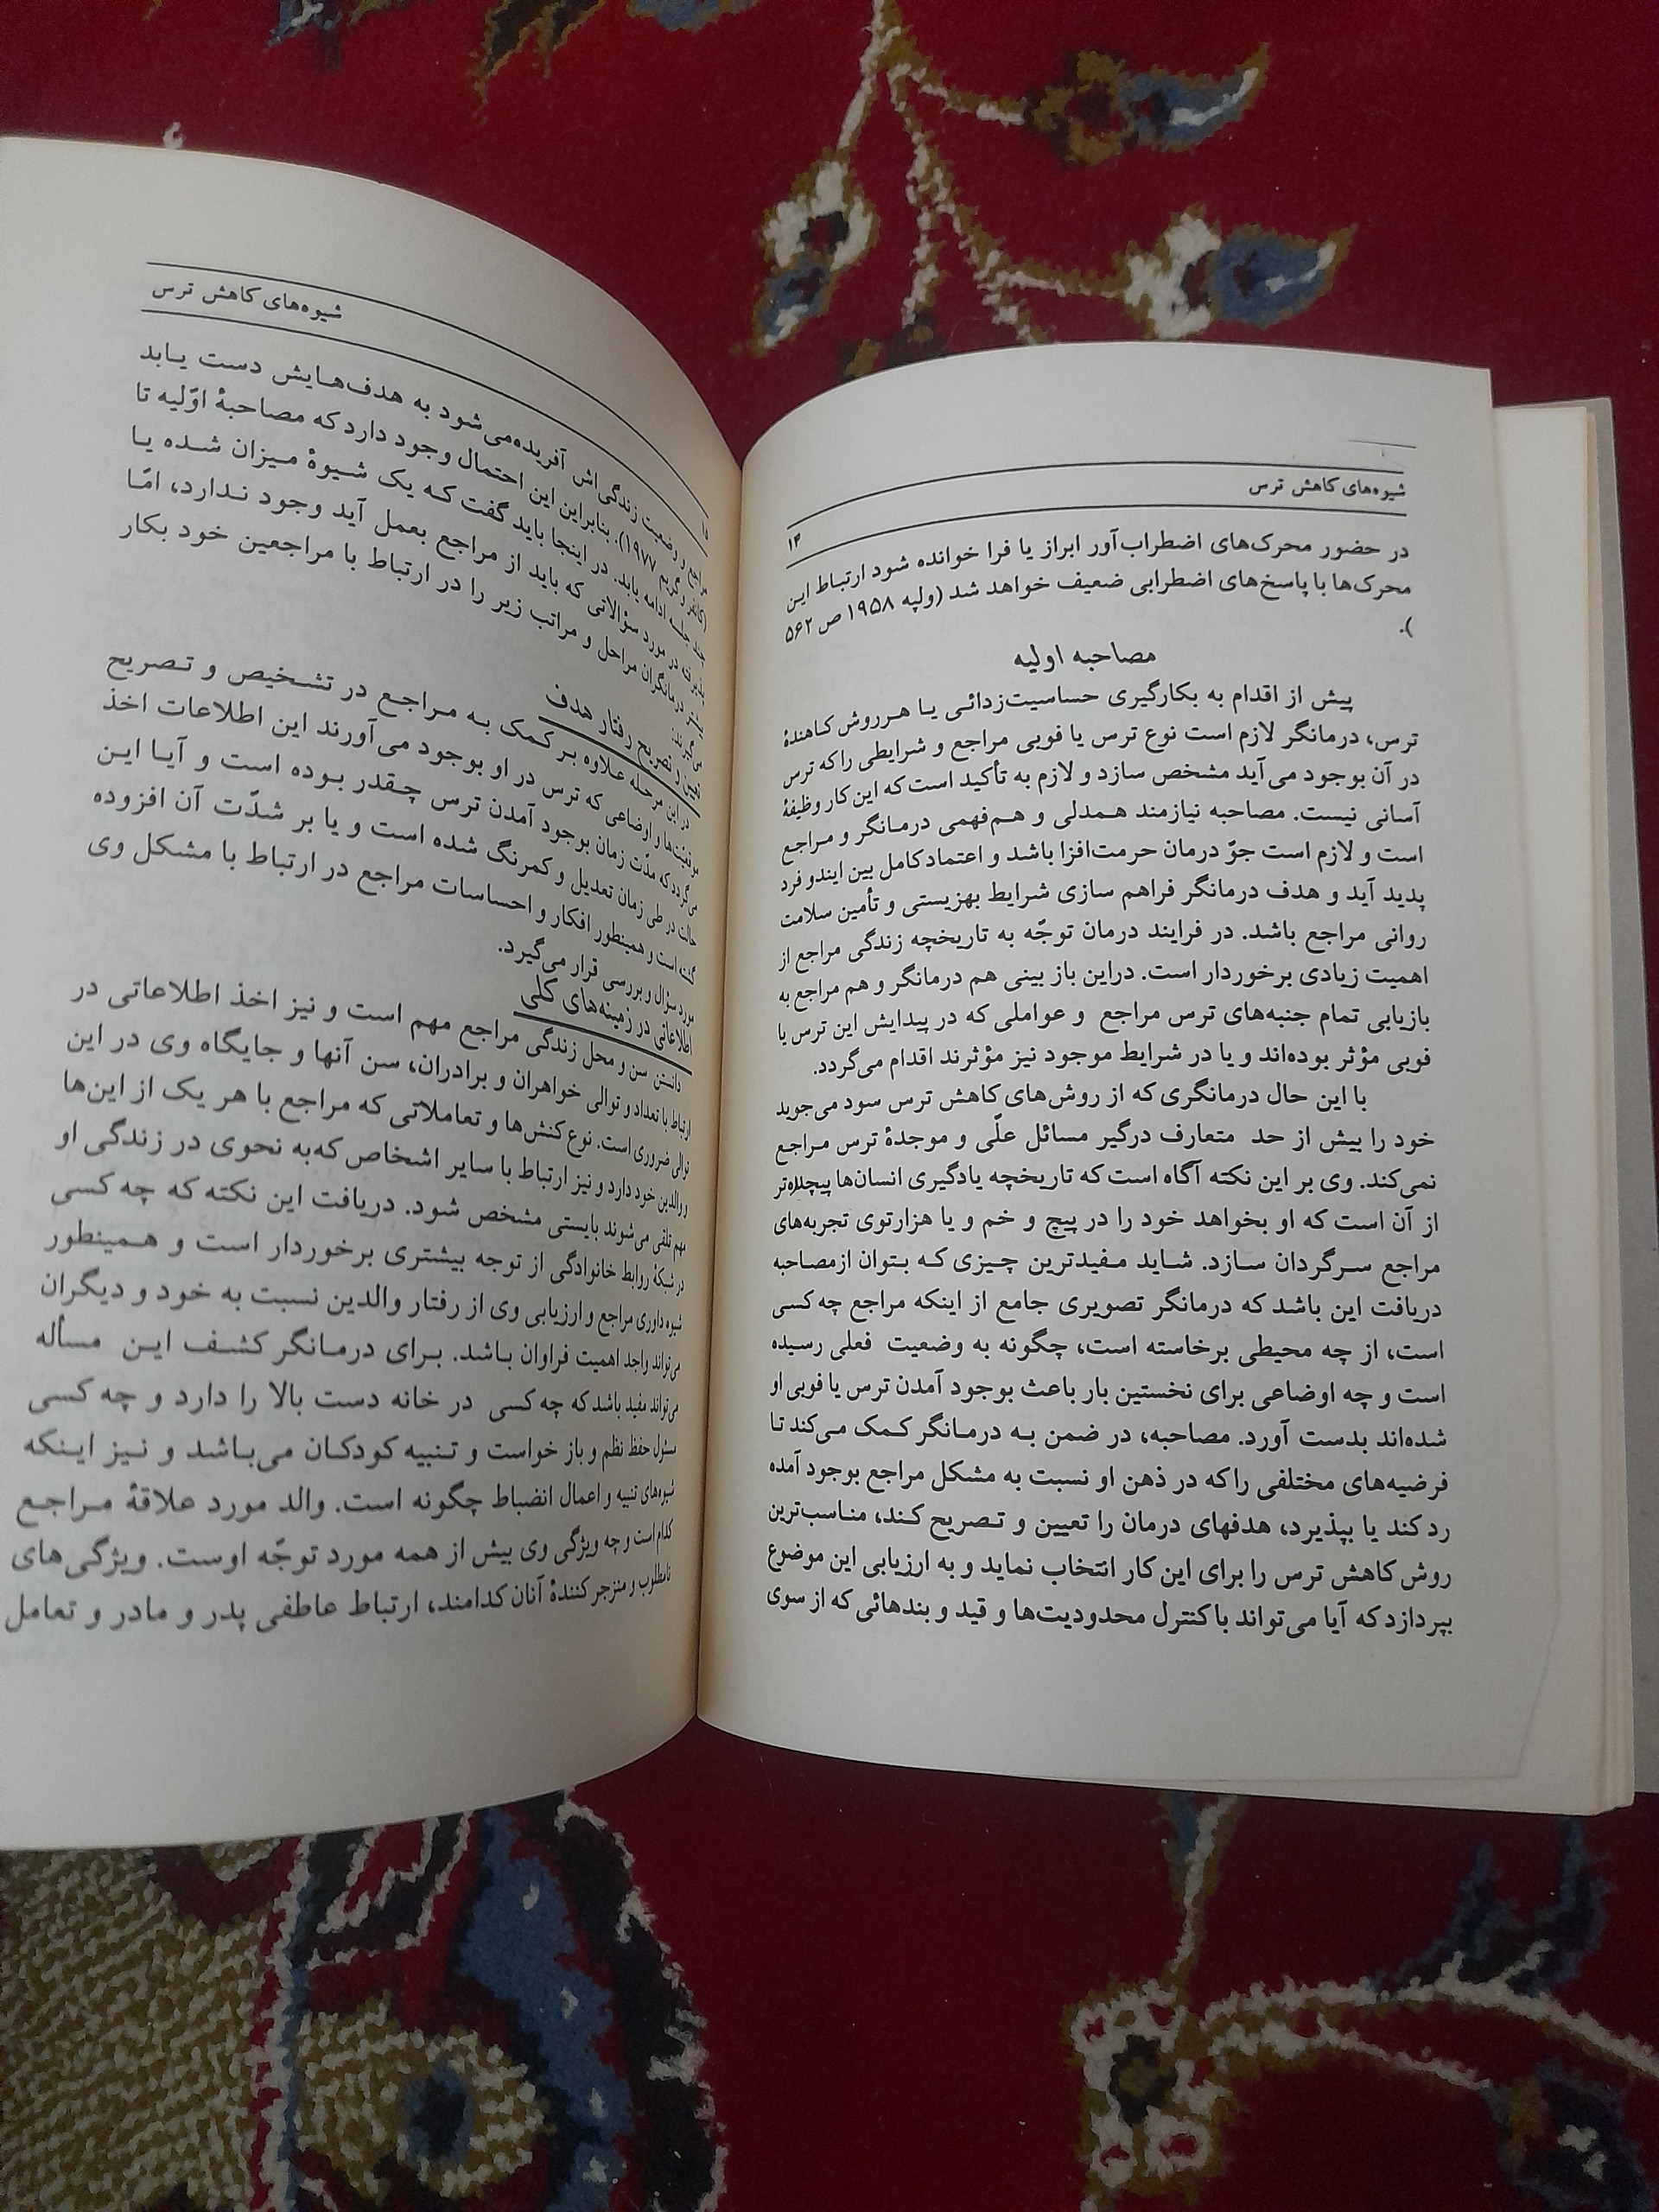 شیوه‌های کاهش ترس
۱۳
در حضور محرک‌های اضطراب‌آور ابراز یا فرا خوانده شود ارتباط این
محرک‌ها با پاسخ‌های اضطرابی ضعیف خواهد شد (ولپه ۱۹۵۸ ص ۵۶۲
).
مصاحبه اولیه
پیش از اقدام به بکارگیری حساسیت‌زدائی یا هر روش کاهندهٔ
ترس، درمانگر لازم است نوع ترس یا فوبی مراجع و شرایطی را که ترس
در آن بوجود می‌آید مشخص سازد و لازم به تأکید است که این کار وظیفهٔ
آسانی نیست. مصاحبه نیازمند همدلی و هم‌فهمی درمانگر و مراجع
است و لازم است جوّ درمان حرمت‌افزا باشد و اعتماد کامل بین ایندو فرد
پدید آید و هدف درمانگر فراهم سازی شرایط بهزیستی و تأمین سلامت
روانی مراجع باشد. در فرایند درمان توجّه به تاریخچه زندگی مراجع از
اهمیت زیادی برخوردار است. دراین باز بینی هم درمانگر و هم مراجع به
بازیابی تمام جنبه‌های ترس مراجع و عواملی که در پیدایش این ترس یا
فوبی مؤثر بوده‌اند و یا در شرایط موجود نیز مؤثرند اقدام می‌گردد.
با این حال درمانگری که از روش‌های کاهش ترس سود می‌جوید
خود را بیش از حد متعارف درگیر مسائل علّی و موجدهٔ ترس مراجع
نمی‌کند. وی بر این نکته آگاه است که تاریخچه یادگیری انسان‌ها پیچیده‌تر
از آن است که او بخواهد خود را در پیچ و خم و یا هزارتوی تجربه‌های
مراجع سرگردان سازد. شاید مفیدترین چیزی که بتوان ازمصاحبه
دریافت این باشد که درمانگر تصویری جامع از اینکه مراجع چه کسی
است، از چه محیطی برخاسته است، چگونه به وضعیت فعلی رسیده
است و چه اوضاعی برای نخستین بار باعث بوجود آمدن ترس یا فوبی او
شده‌اند بدست آورد. مصاحبه، در ضمن به درمانگر کمک می‌کند تا
فرضیه‌های مختلفی را که در ذهن او نسبت به مشکل مراجع بوجود آمده
رد کند یا بپذیرد، هدفهای درمان را تعیین و تصریح کند، مناسب‌ترین
روش کاهش ترس را برای این کار انتخاب نماید و به ارزیابی این موضوع
بپردازد که آیا می‌تواند با کنترل محدودیت‌ها و قید و بندهائی که از سوی
شیوه‌های کاهش ترس
مراجع و وضعیت زندگی‌اش آفریده‌می‌شود به هدف‌هایش دست یابد
(کانفر و گریم ۱۹۷۷). بنابراین این احتمال وجود دارد که مصاحبهٔ اوّلیه تا
چند جلسه ادامه یابد. در اینجا باید گفت که یک شیوهٔ میزان شده یا
پذیرفته در مورد سؤالاتی که باید از مراجع بعمل آید وجود ندارد، امّا
درمانگران مراحل و مراتب زیر را در ارتباط با مراجعین خود بکار
می‌گیرند:
تعیین و تصریح رفتار هدف
در این مرحله علاوه بر کمک به مراجع در تشخیص و تصریح
موقعیّت‌ها و اوضاعی که ترس در او بوجود می‌آورند این اطلاعات اخذ
می‌گردد که مدّت زمان بوجود آمدن ترس چقدر بوده است و آیا این
حالت در طی زمان تعدیل و کمرنگ شده است و یا بر شدّت آن افزوده
گشته است و همینطور افکار و احساسات مراجع در ارتباط با مشکل وی
مورد سؤال و بررسی قرار می‌گیرد.
اطلاعاتی در زمینه‌های کلی
دانستن سن و محل زندگی مراجع مهم است و نیز اخذ اطلاعاتی در
ارتباط با تعداد و توالی خواهران و برادران، سن آنها و جایگاه وی در این
توالی ضروری است. نوع کنش‌ها و تعاملاتی که مراجع با هر یک از این‌ها
و والدین خود دارد و نیز ارتباط با سایر اشخاص که‌به نحوی در زندگی او
مهم تلقی می‌شوند بایستی مشخص شود. دریافت این نکته که چه کسی
در شبکهٔ روابط خانوادگی از توجه بیشتری برخوردار است و همینطور
شیوه داوری مراجع و ارزیابی وی از رفتار والدین نسبت به خود و دیگران
می‌تواند واجد اهمیت فراوان باشد. برای درمانگر کشف این مسأله
می‌تواند مفید باشد که چه کسی در خانه دست بالا را دارد و چه کسی
مسئول حفظ نظم و باز خواست و تنبیه کودکان می‌باشد و نیز اینکه
شیوه‌های تنبیه و اعمال انضباط چگونه است. والد مورد علاقهٔ مراجع
کدام است و چه ویژگی وی بیش از همه مورد توجّه اوست. ویژگی‌های
نامطلوب و منزجر کنندهٔ آنان کدامند، ارتباط عاطفی پدر و مادر و تعامل